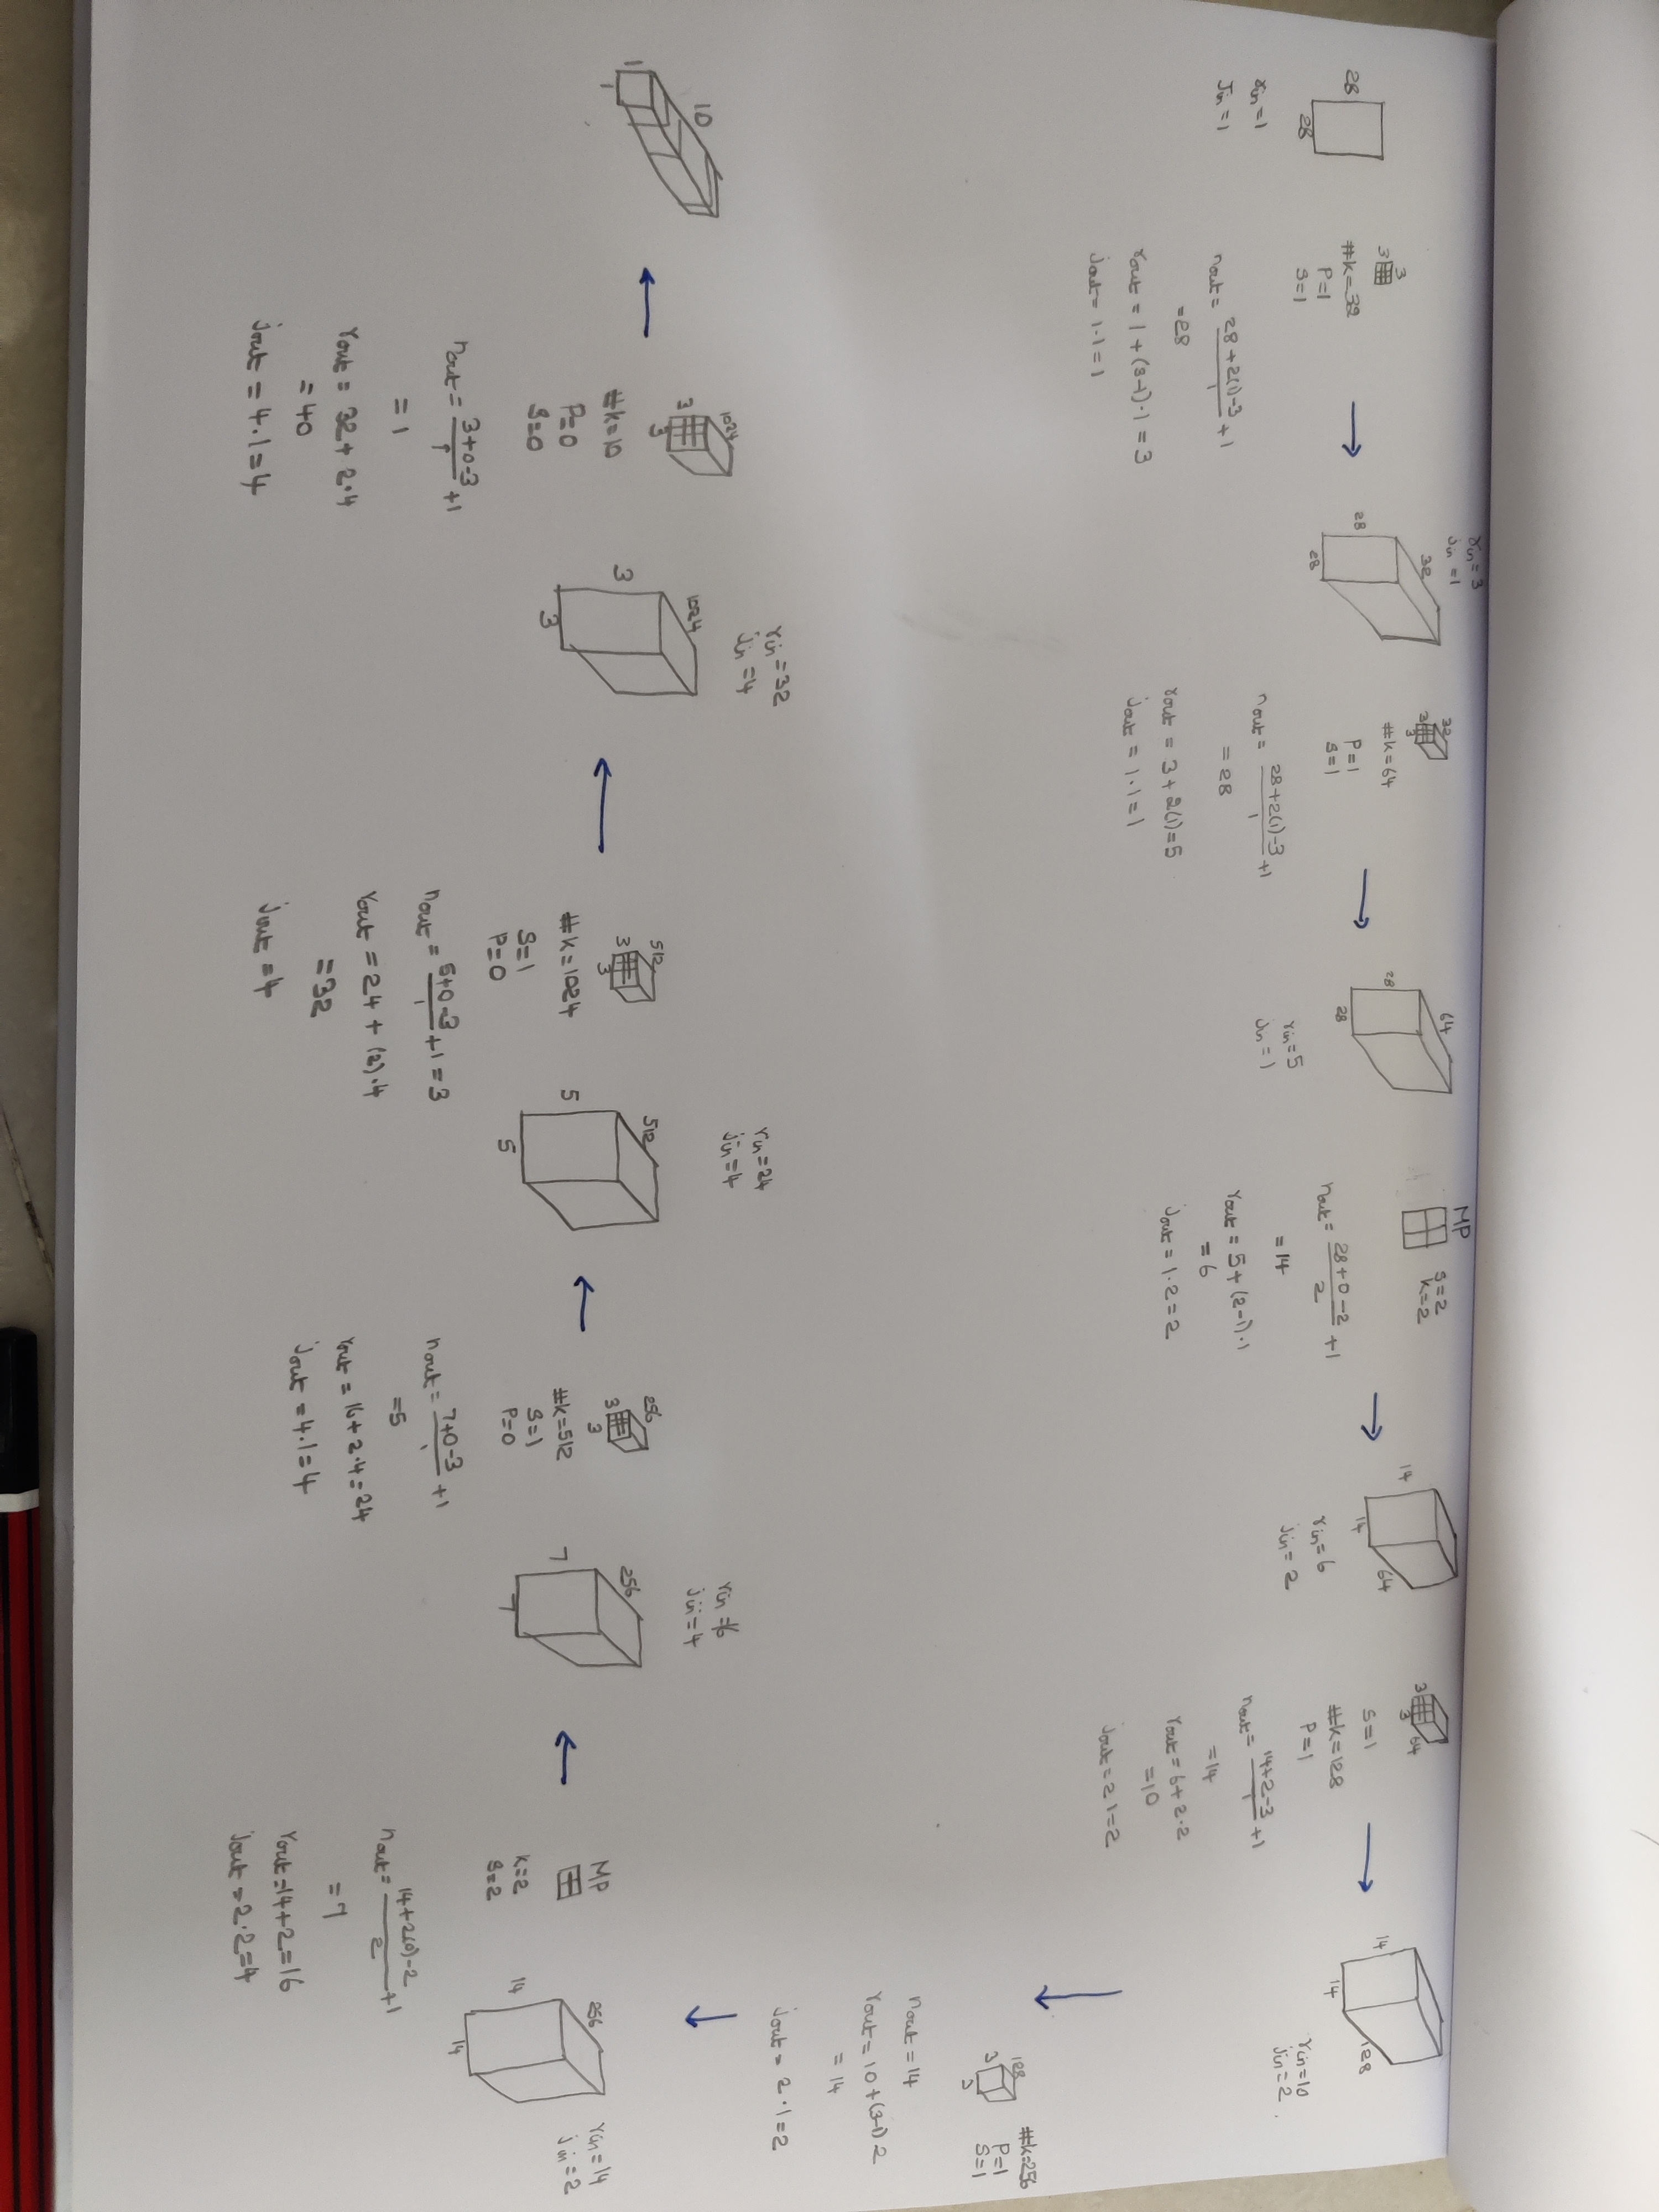 28
28
rin=1
Jin=1
3
3
#k=32
P=1
S=1
nout= 28+2(1)-3/1 +1
=28
rout = 1+(3-1)·1 = 3
jout= 1·1=1
rin=3
jin=1
32
28
28
32
3
3
#k=64
P=1
S=1
nout= 28+2(1)-3/1 +1
= 28
rout = 3+2(1)=5
jout = 1·1=1
64
28
28
rin=5
jin=1
MP
S=2
k=2
nout= 28+0-2/2 +1
=14
rout = 5+(2-1)·1
= 6
jout = 1·2=2
14
14
64
rin=6
jin=2
3
3
64
S=1
#k=128
P=1
nout= 14+2-3/1 +1
=14
rout = 6+2·2
=10
jout=2 1=2
14
14
128
rin=10
jin=2
128
3
3
#k=256
P=1
S=1
nout=14
rout= 10+(3-1) 2
= 14
jout= 2·1=2
256
14
14
rin=14
jin=2
MP
k=2
S=2
nout= 14+2(0)-2/2 +1
=7
rout=14+2=16
jout=2·2=4
rin=16
jin=4
256
7
7
256
3
3
#k=512
S=1
P=0
nout= 7+0-3/1 +1
=5
rout = 16+2·4=24
jout=4·1=4
rin=24
jin=4
512
5
5
512
3
3
#k=1024
S=1
P=0
nout= 5+0-3/1 +1=3
rout = 24 + (2)·4
=32
jout=4
rin=32
jin=4
1024
3
3
1024
3
3
#k=10
P=0
S=0
nout= 3+0-3/1 +1
= 1
rout = 32+ 2·4
= 40
jout = 4·1=4
10
1
1